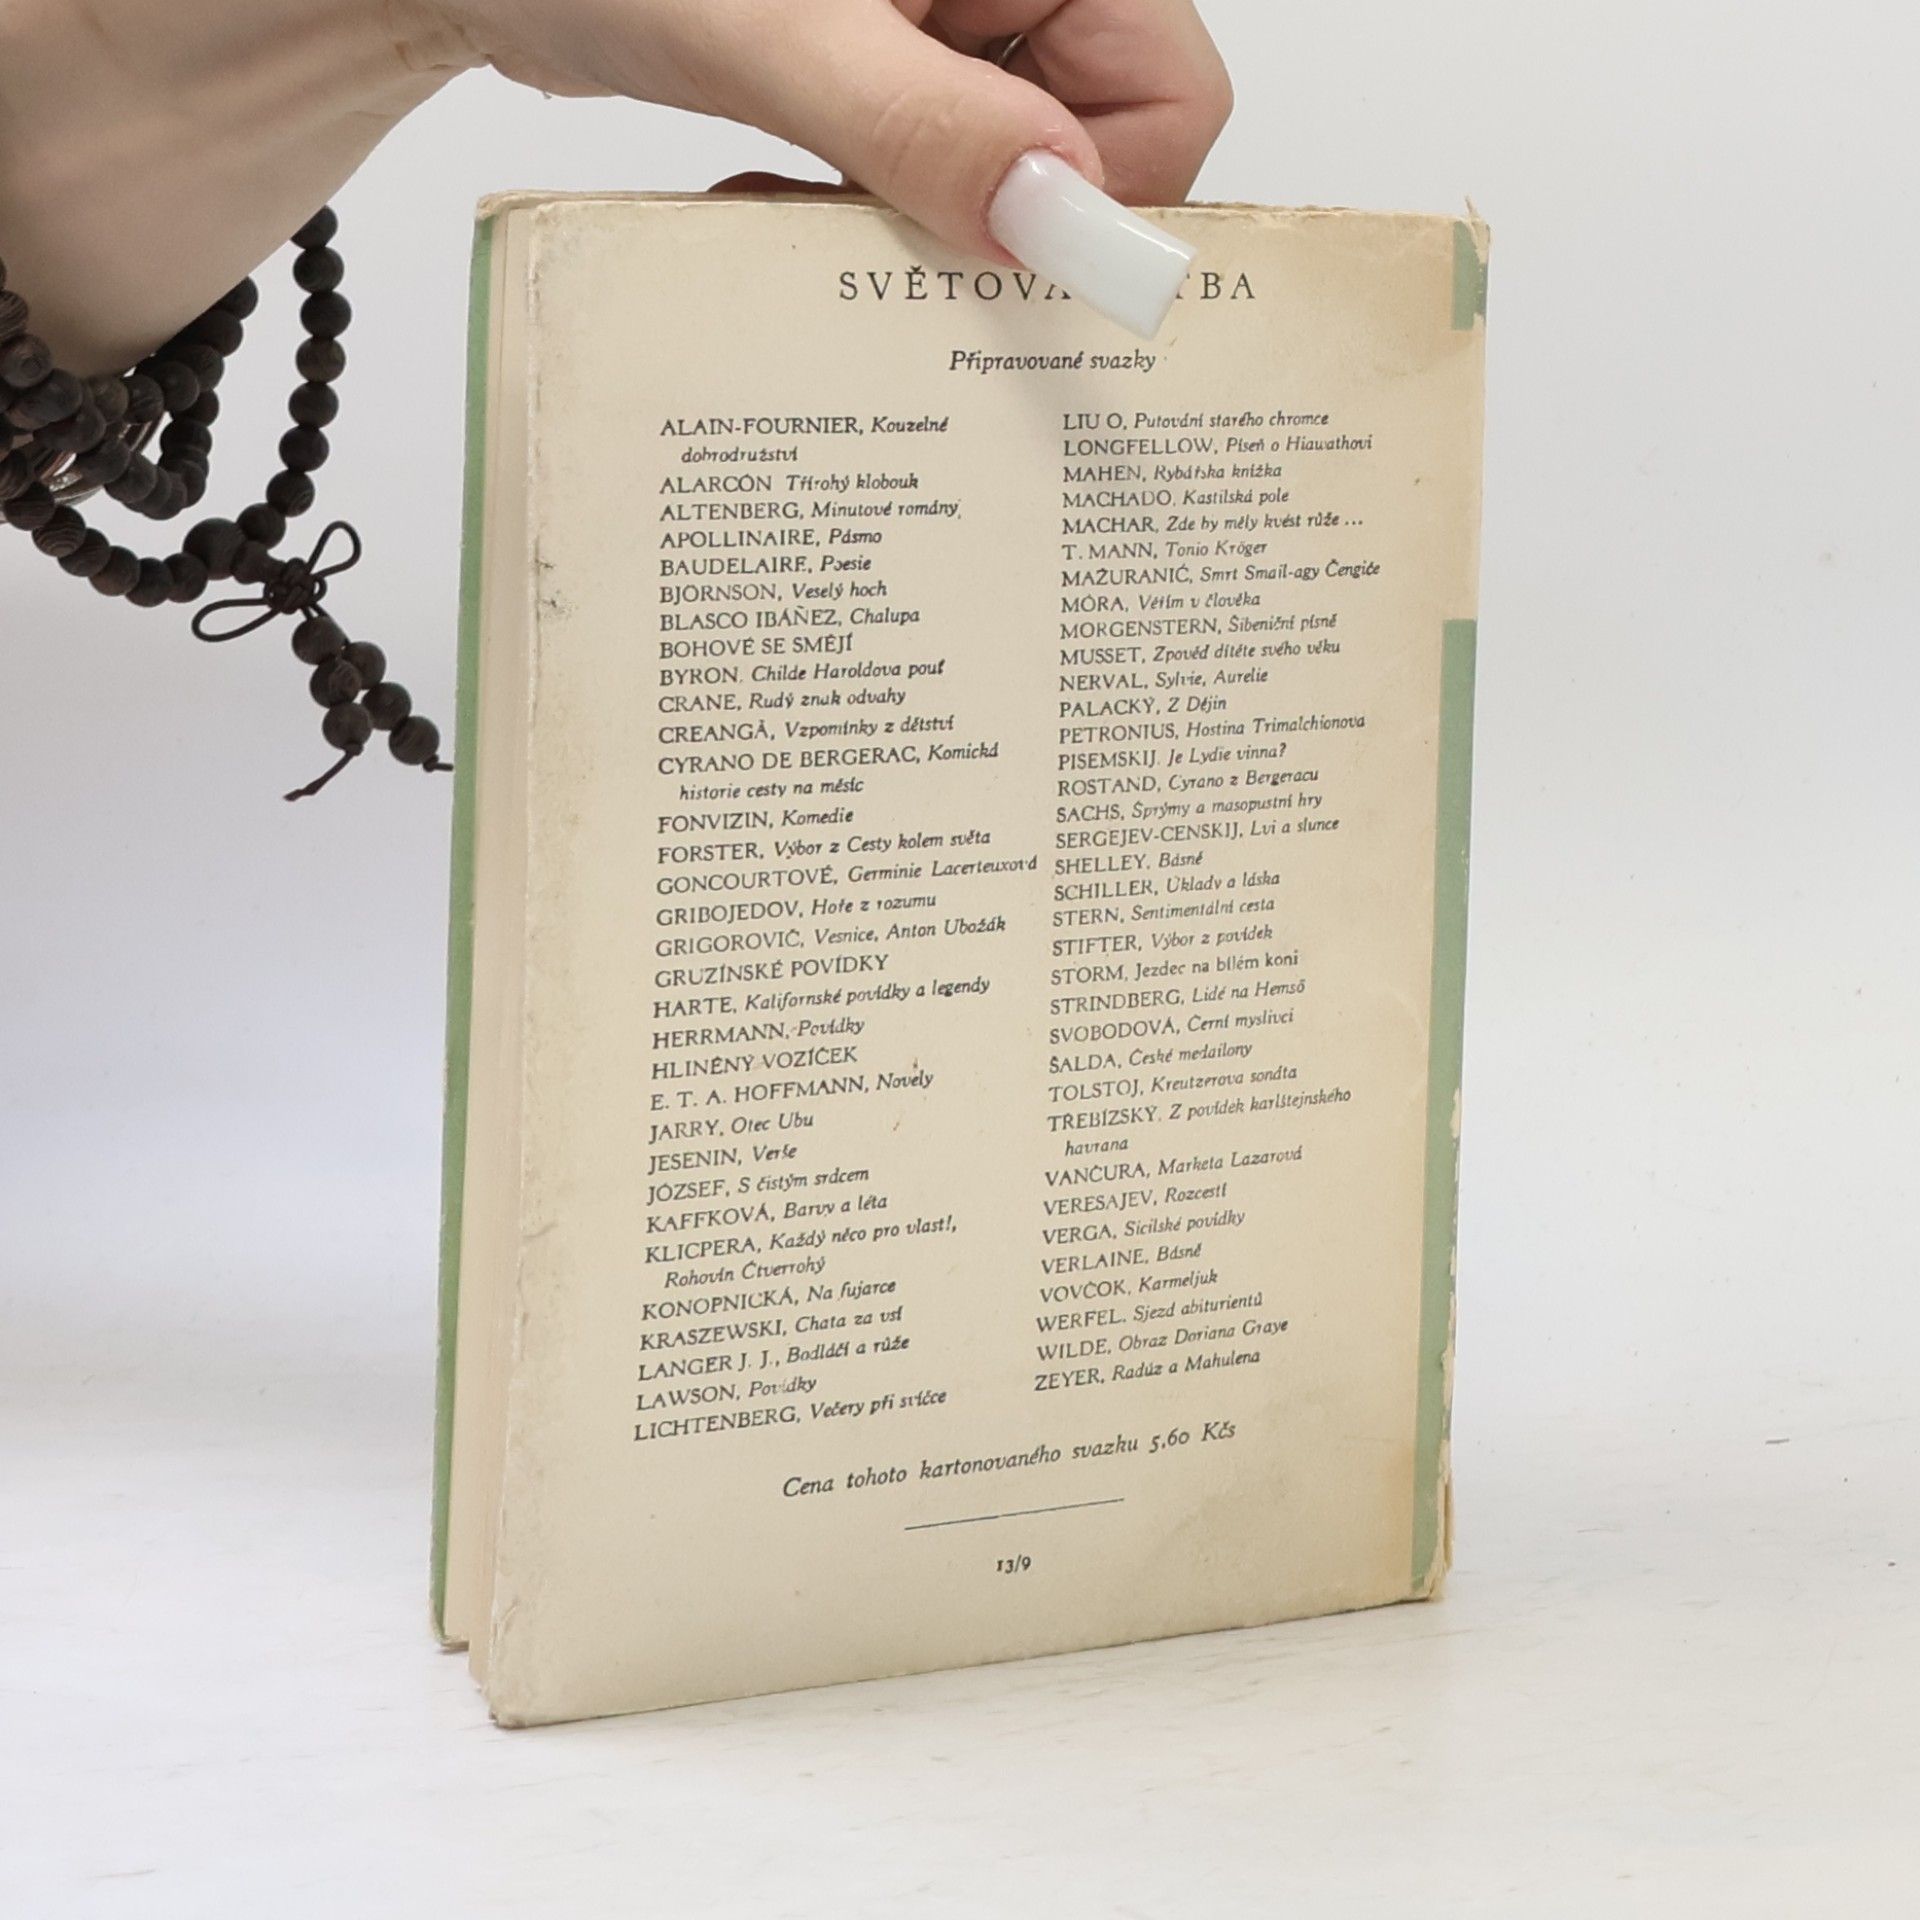 SVĚTOVÁ TBA
Připravované svazky
ALAIN-FOURNIER, Kouzelné
dobrodružství
ALARCÓN Třírohý klobouk
ALTENBERG, Minutové romány,
APOLLINAIRE, Pásmo
BAUDELAIRE, Poesie
BJÖRNSON, Veselý hoch
BLASCO IBÁÑEZ, Chalupa
BOHOVÉ SE SMĚJÍ
BYRON, Childe Haroldova pouť
CRANE, Rudý znak odvahy
CREANGĂ, Vzpomínky z dětství
CYRANO DE BERGERAC, Komická
historie cesty na měsíc
FONVIZIN, Komedie
FORSTER, Výbor z Cesty kolem světa
GONCOURTOVÉ, Germinie Lacerteuxová
GRIBOJEDOV, Hoře z rozumu
GRIGOROVIČ, Vesnice, Anton Ubožák
GRUZÍNSKÉ POVÍDKY
HARTE, Kalifornské povídky a legendy
HERRMANN, Povídky
HLINĚNÝ VOZÍČEK
E. T. A. HOFFMANN, Novely
JARRY, Otec Ubu
JESENIN, Verše
JÓZSEF, S čistým srdcem
KAFFKOVÁ, Barvy a léta
KLICPERA, Každý něco pro vlast!,
Rohovín Čtverrohý
KONOPNICKÁ, Na fujarce
KRASZEWSKI, Chata za vsí
LANGER J. J., Bodláčí a růže
LAWSON, Povídky
LICHTENBERG, Večery při svíčce
LIU O, Putování starého chromce
LONGFELLOW, Píseň o Hiawathovi
MAHEN, Rybářska knížka
MACHADO, Kastilská pole
MACHAR, Zde by měly kvést růže ...
T. MANN, Tonio Kröger
MAŽURANIĆ, Smrt Smail-agy Čengiće
MÓRA, Věřím v člověka
MORGENSTERN, Šibeniční písně
MUSSET, Zpověď dítěte svého věku
NERVAL, Sylvie, Aurelie
PALACKÝ, Z Dějin
PETRONIUS, Hostina Trimalchionova
PISEMSKIJ, Je Lydie vinna?
ROSTAND, Cyrano z Bergeracu
SACHS, Šprýmy a masopustní hry
SERGEJEV-CENSKIJ, Lvi a slunce
SHELLEY, Básně
SCHILLER, Úklady a láska
STERN, Sentimentální cesta
STIFTER, Výbor z povídek
STORM, Jezdec na bílém koni
STRINDBERG, Lidé na Hemsö
SVOBODOVÁ, Černí myslivci
ŠALDA, České medailony
TOLSTOJ, Kreutzerova sonáta
TŘEBÍZSKÝ, Z povídek karlštejnského
havrana
VANČURA, Marketa Lazarová
VERESAJEV, Rozcestí
VERGA, Sicilské povídky
VERLAINE, Básně
VOVČOK, Karmeljuk
WERFEL, Sjezd abiturientů
WILDE, Obraz Doriana Graye
ZEYER, Radúz a Mahulena
Cena tohoto kartonovaného svazku 5,60 Kčs
13/9